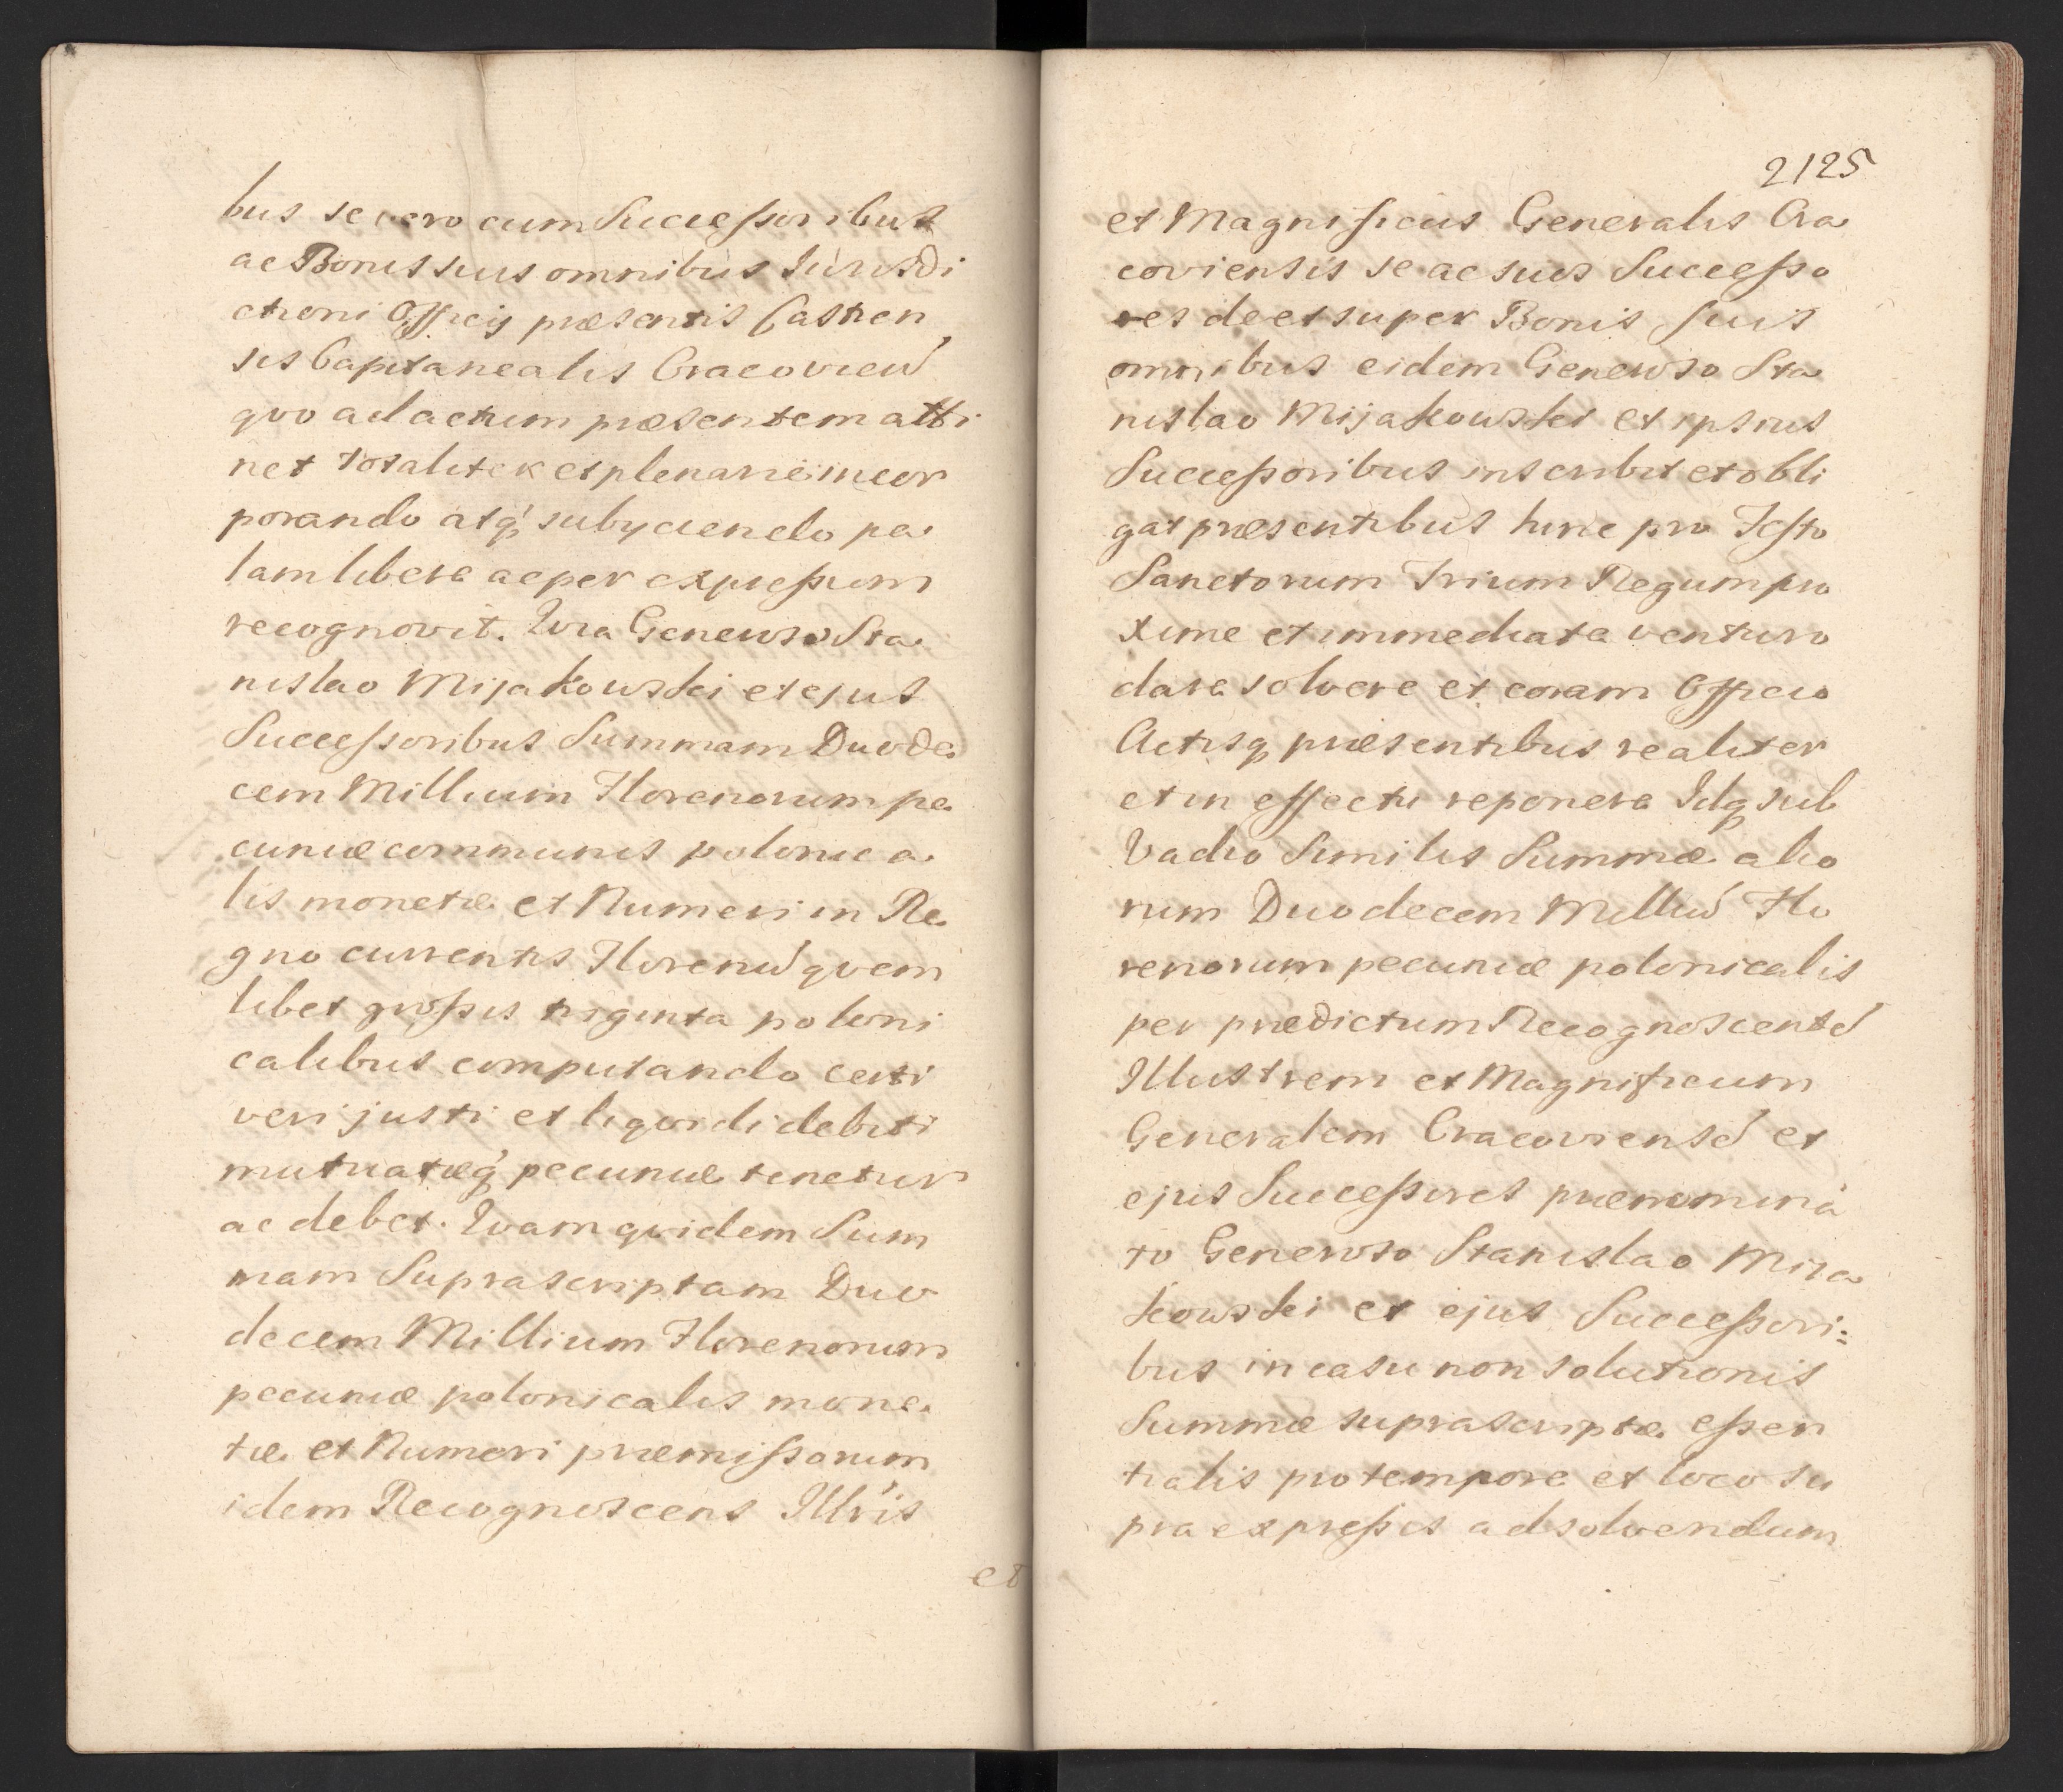 bus se vero cum Successoribus
ac Bonis suis omnibus Jurisdi
ctioni Officij præsentis Castren
sis Capitanealis Cracovien
qvo ad actum præsentem atti
net totaliter et plenarie incor
porando atq subijciendo pa
lam libere ac per expressum
recognovit. Qvia Generoso Sta
nislao Mijakowski et ejus
Successoribus Summam Duode
cem Millium Florenorum pe
cuniæ communis polonica
lis monetæ et Numeri in Re
gno currentis Florenū qvem
libet grossis triginta poloni
calibus computando certi
veri justi et liqvidi debiti
mutuatæq pecuniæ tenetur
ac debet. Qvam qvidem Sum
mam Suprascriptam Duo
decem Millium Florenorum
pecuniæ polonicalis mone
tæ et Numeri præmissorum
idem Recognoscens Illris
et
2125
et Magnificus Generalis Cra
coviensis se ac suos Successo
res de et super Bonis suis
omnibus eidem Generoso Sta
nislao Mijakowski et ipsius
Successoribus inscribit et obli
gat præsentibus hinc pro Festo
Sanctorum Trium Regum pro
xime et immediate venturo
dare solvere et coram Officio
Actisq præsentibus realiter
et in effectu reponere Idq sub
Vadio Similis Summæ alio
rum Duodecem Milliū Flo
renorum pecuniæ polonicalis
per prædictum Recognoscentē
Illustrem et Magnificum
Generalem Cracoviensē et
ejus Successores prænomina
to Generoso Stanislao Mija
kowski et ejus Successori=
bus in casu non solutionis
Summæ suprascriptæ essen
tialis pro tempore et loco su
pra expressis ad solvendum